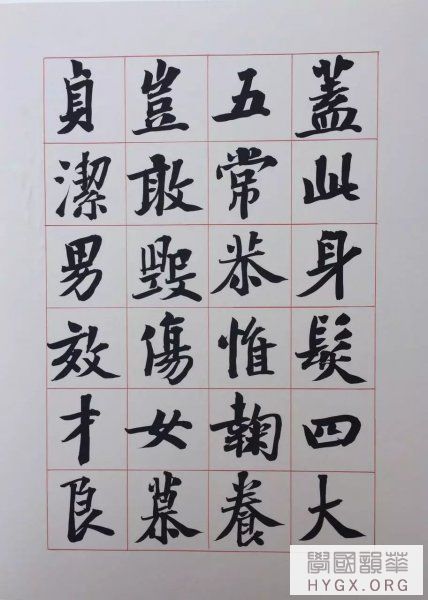 蓋此身髮四大
五常恭惟鞠養
豈敢毀傷女慕
貞潔男效才良
華韻國學
HYGX.ORG